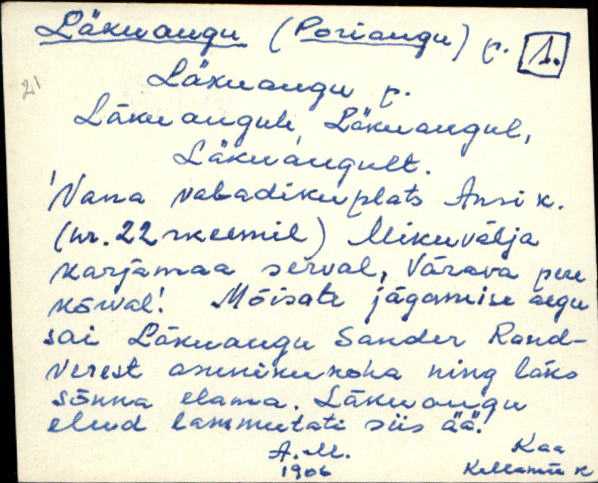 Läkuaugu (Poriaugu) p. 1.
21
Läkuaugu p.
Läkuaugule, Läkuaugul,
Läkuaugult.
'Vana vabadikuplats Ansi k.
(nr. 22 skeemil) Mikuvälja
karjamaa serval, Värava pere
kõrval! Mõisate jägamise aegu
sai Läkuaugu Sander Rand-
verest asunikukoha ning läks
sõnna elama. Läkuaugu
elud lammutati siis ää.'
A.M. Kaa
1906 k